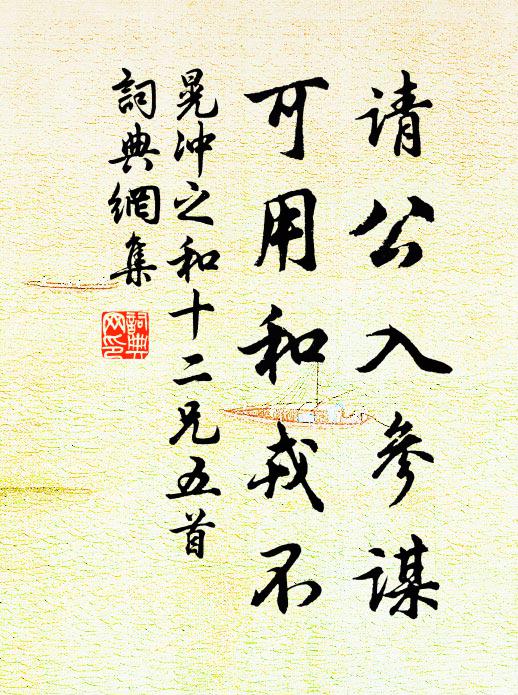 请公入参谋
可用和戎不
晁冲之和十二兄五首
詞典網集
詞典网印